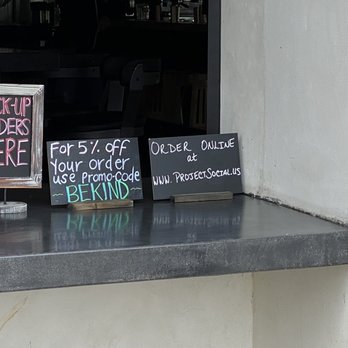 CK-UP
DERS
ERE
For 5% off
Your order
use Promo-Code
BEKIND
ORDER ONLINE
at
WWW.PROJECTSOCIAL.US